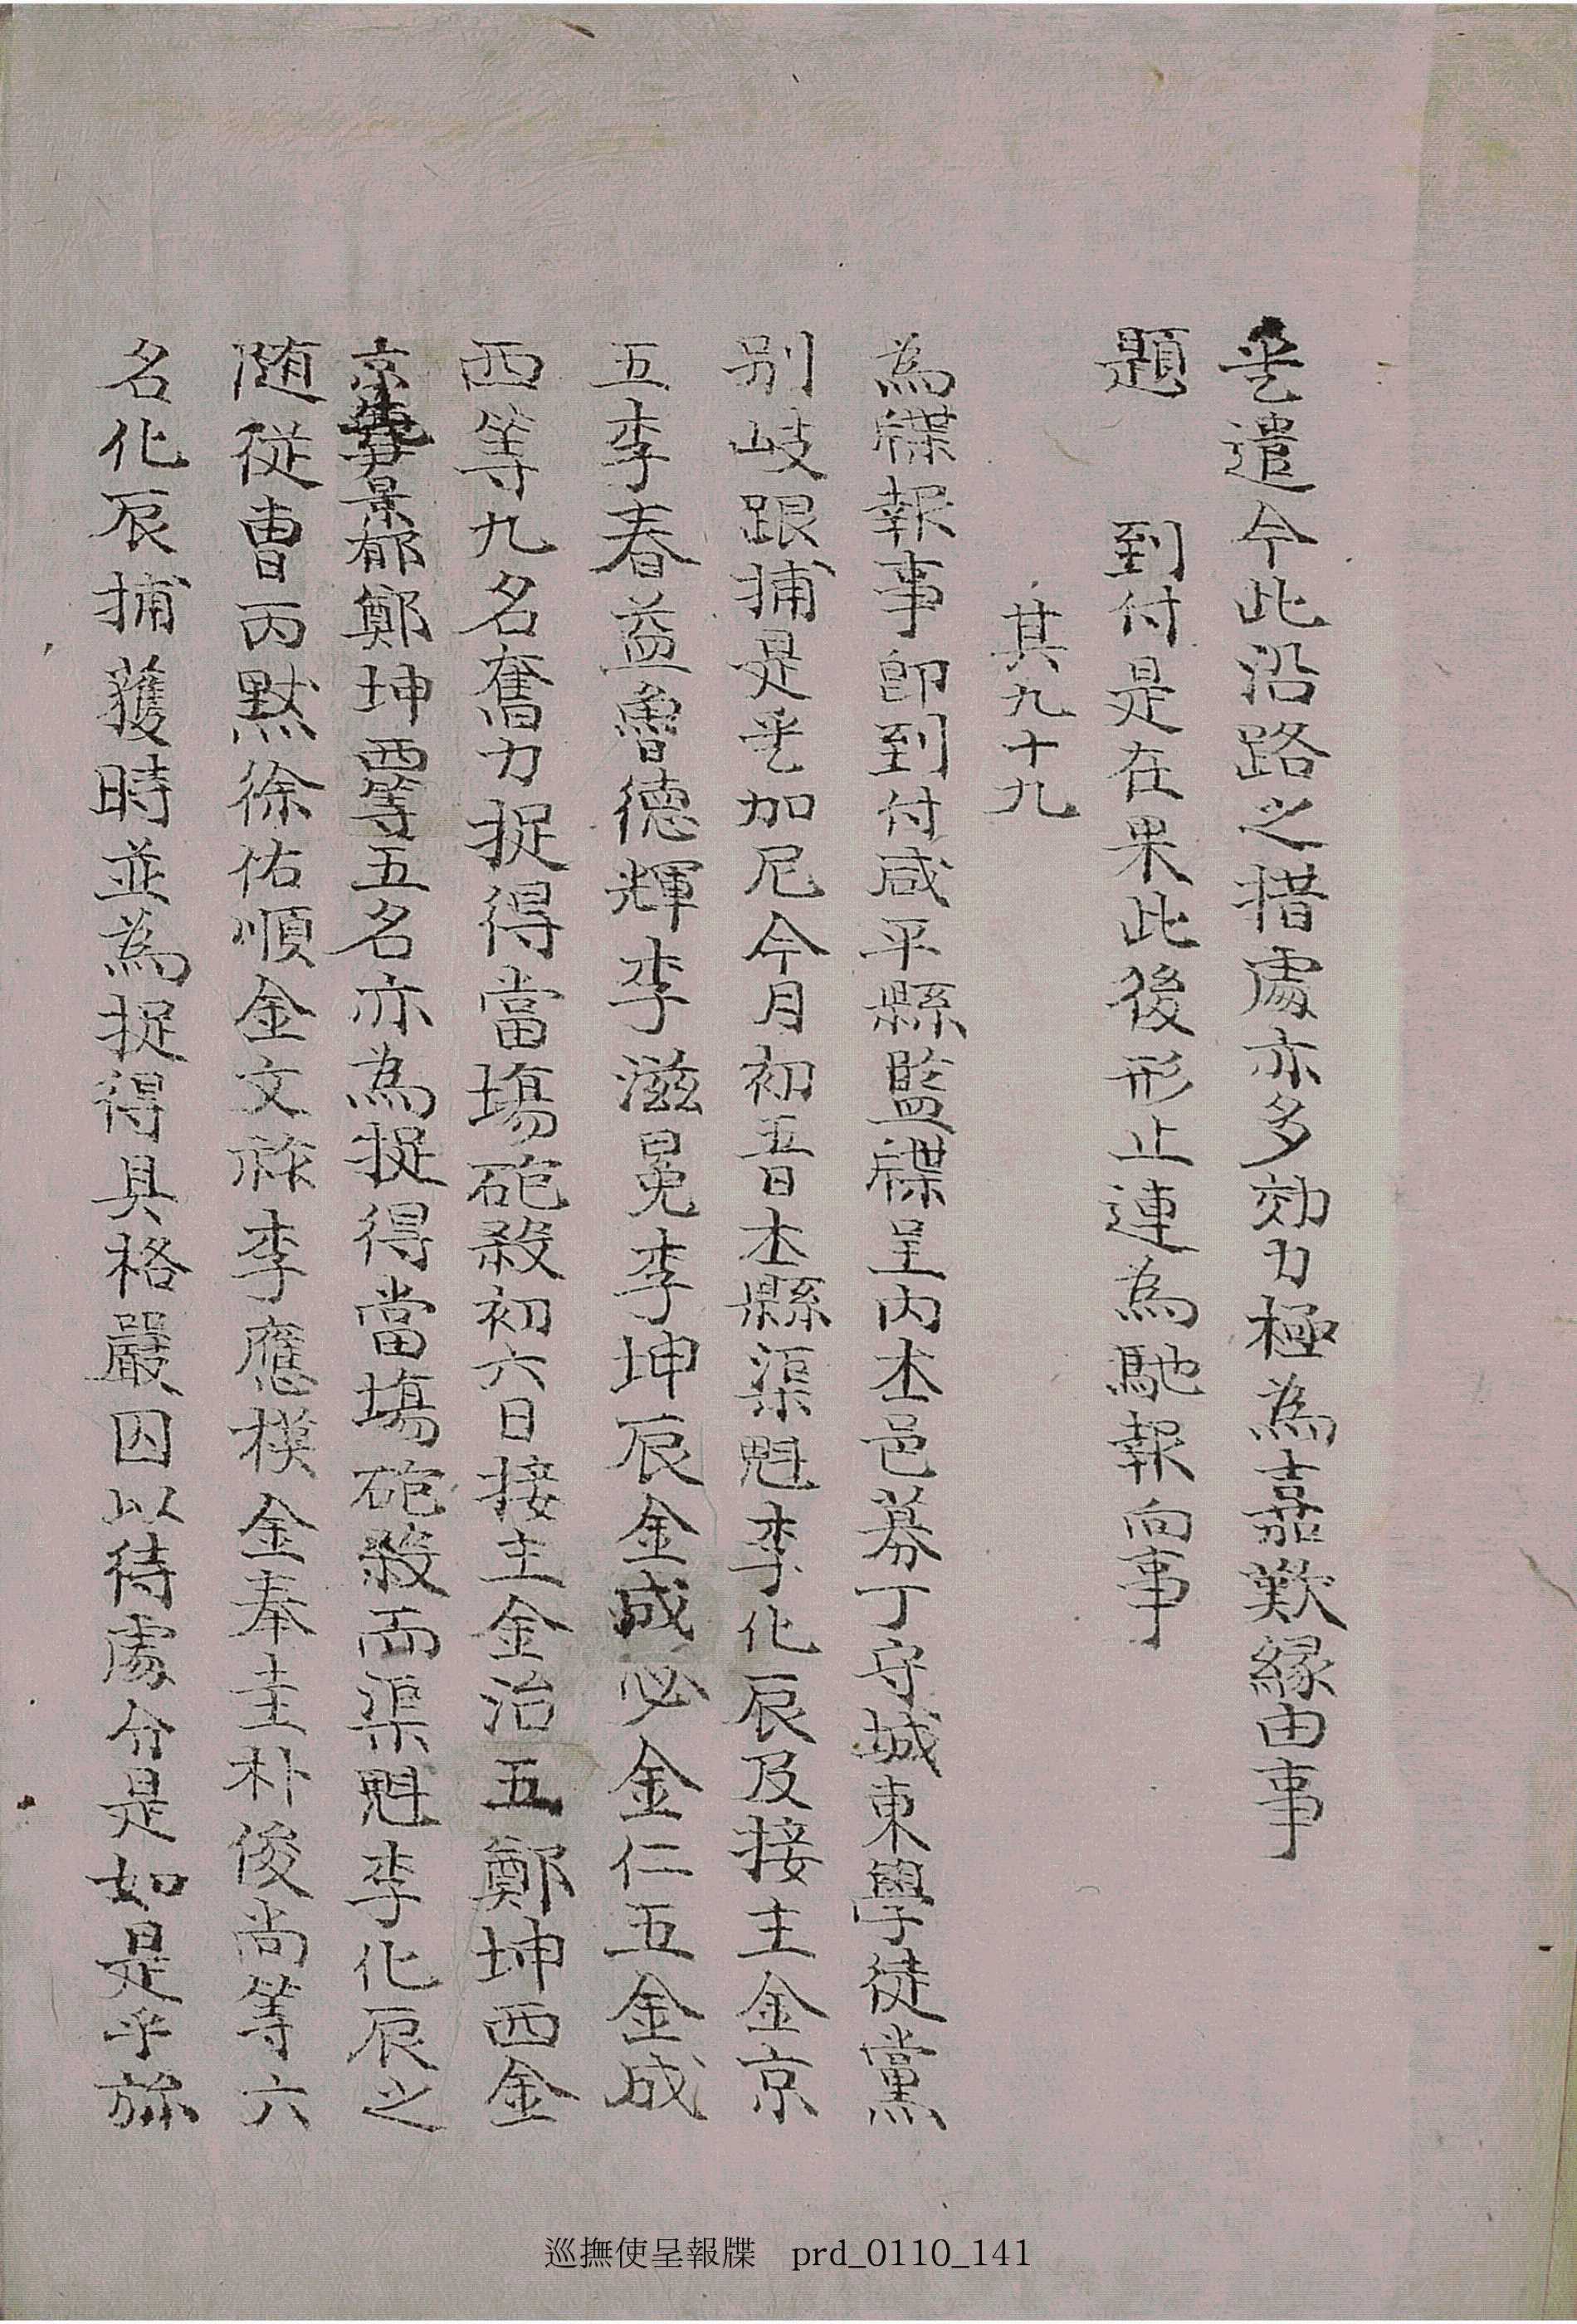 是遣今此沿路之措處亦多効力極為嘉歎緣由事
題 到付是在果此後形止連為馳報向事
其九十九
為牒報事卽到付咸平縣監牒呈內本邑募丁守城東學徒黨
別岐跟捕是乎加尼今月初五日本縣渠魁李化辰及接主金京
五李春益魯德輝李滋冕李坤辰金成必金仁五金成
西等九名奮力捉得當塲砲殺初六日接主金治五鄭坤西金
京 景都鄭坤西等五名亦為捉得當塲砲殺而渠魁李化辰之
随從曺丙默徐佑順金文祚李應模金奉圭朴俊尚等六
名化辰捕獲時並為捉得具格嚴囚以待處分是如是乎旀
巡撫使呈報牒 prd_0110_141